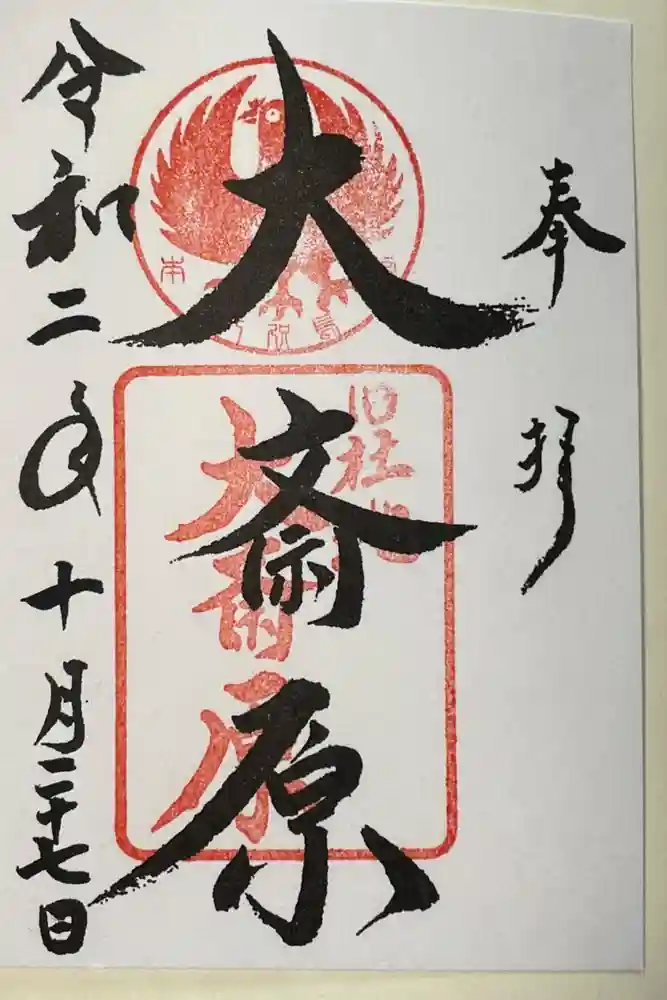 奉拝
大斎原
旧社地
大斎原
令和二年十月二十七日